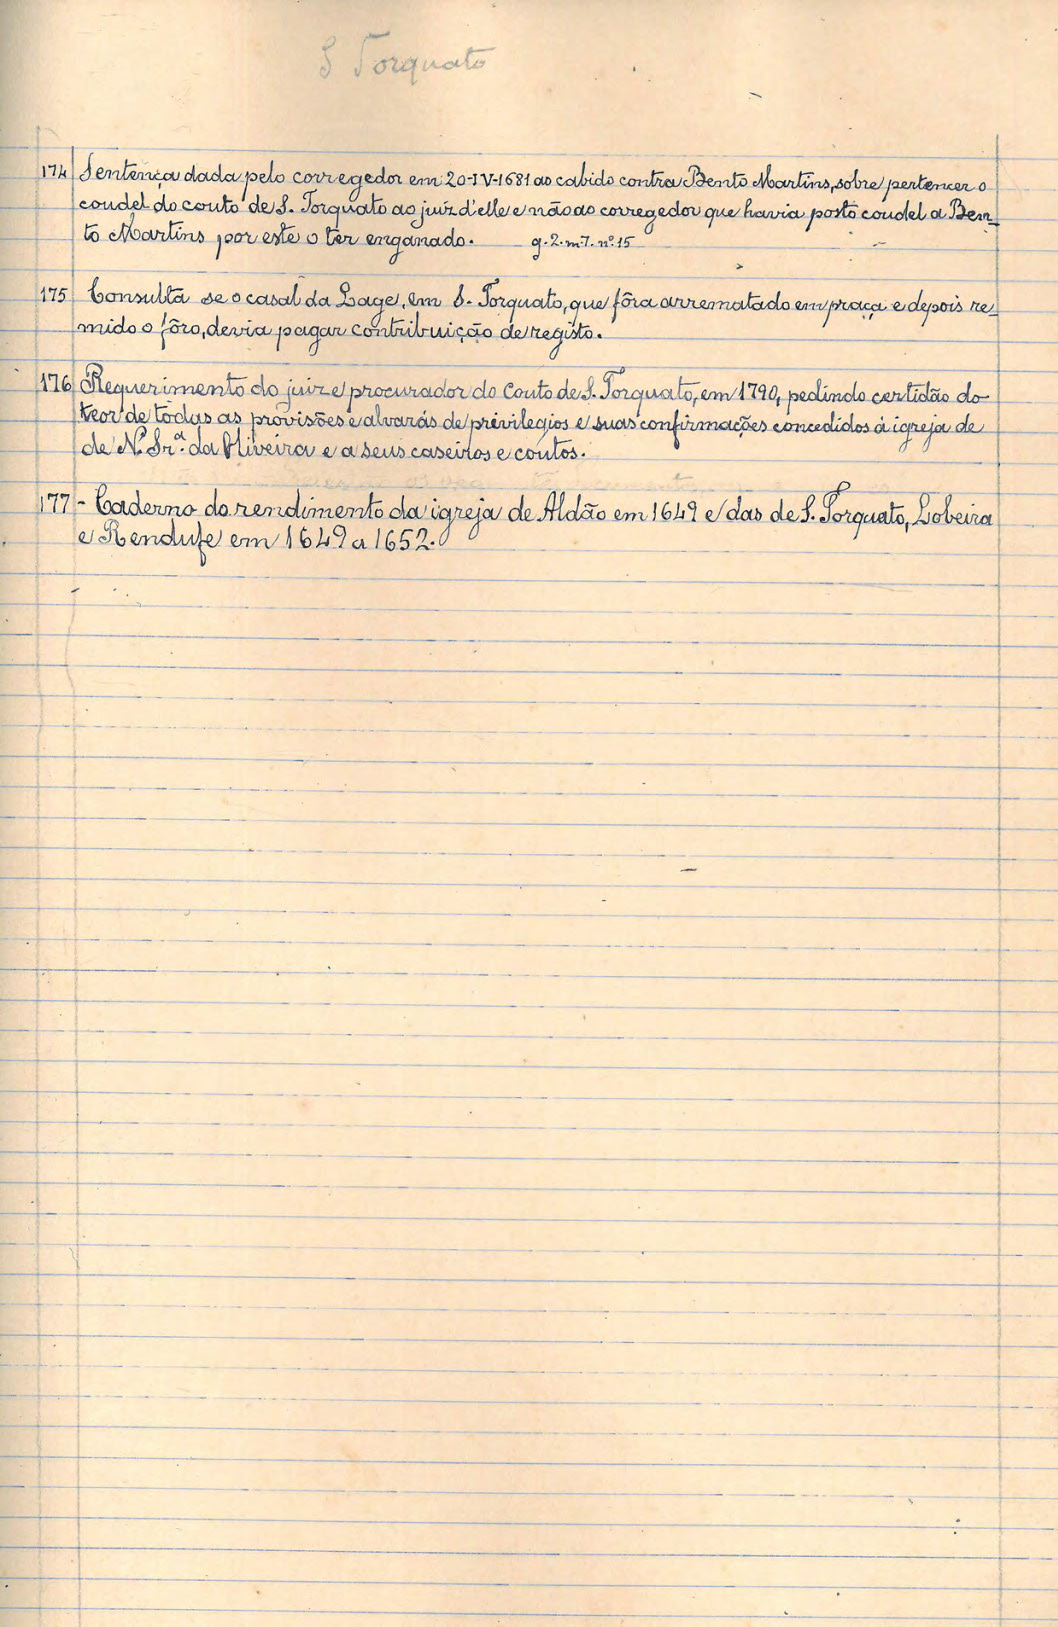 S Torquato
174 Sentença dada pelo corregedor em 20-IV-1681 ao cabido contra Bento Martins, sobre pertencer o
coudel do couto de S. Torquato ao juiz d'elle e não ao corregedor que havia posto coudel a Ben_
to Martins por este o ter enganado. g. 2. m. 7. nº. 15
175 Consulta se o casal da Lage, em S. Torquato, que fôra arrematado em praça e depois re_
mido o fôro, devia pagar contribuição de registo.
176 Requerimento do juiz e procurador do Couto de S. Torquato, em 1790, pedindo certidão do
teor de todas as provisões e alvarás de previlegios e suas confirmações concedidos à igreja de
de N. Sr.ª da Oliveira e a seus caseiros e coutos.
177 - Caderno do rendimento da igreja de Aldão em 1649 e das de S. Torquato, Lobeira
e Rendufe em 1649 a 1652.